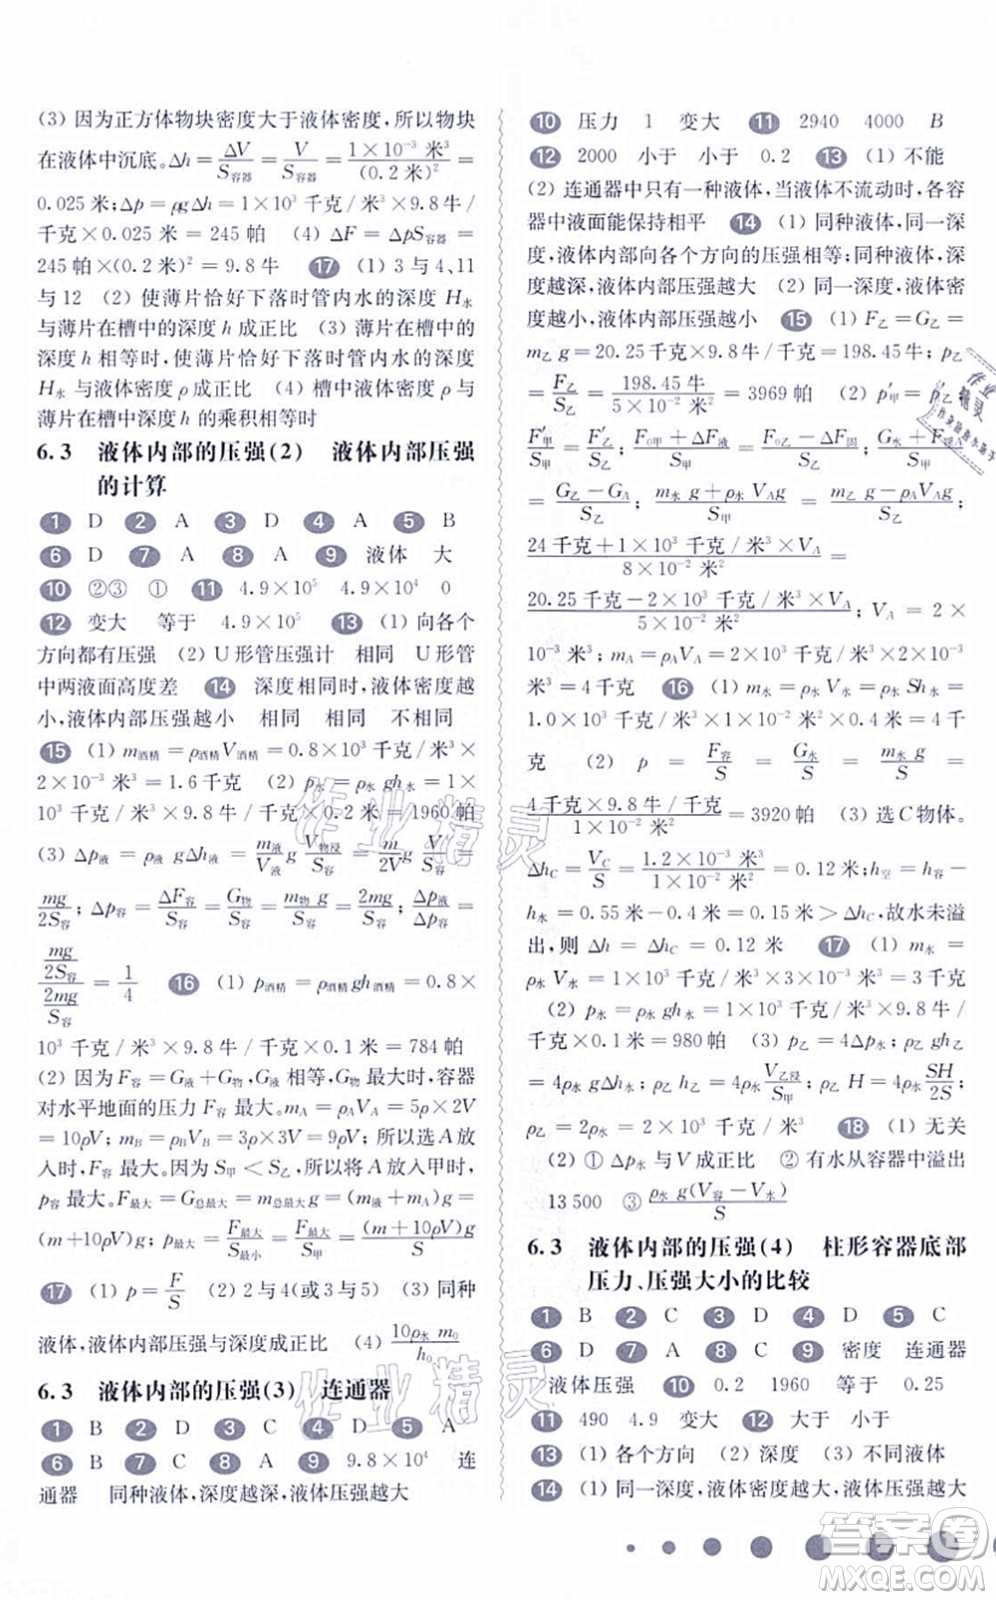 (3) 因为正方体物块密度大于液体密度,所以物块
在液体中沉底。Δh=ΔV/S容器=V/S容器=1×10⁻³ 米³/(0.2 米)²=
0.025 米;Δp=ρgΔh=1×10³ 千克/米³×9.8 牛/
千克×0.025 米=245 帕 (4) ΔF=ΔpS容器=
245 帕×(0.2 米)²=9.8 牛 17 (1) 3 与 4、11
与 12 (2) 使薄片恰好下落时管内水的深度 H水
与薄片在槽中的深度 h 成正比 (3) 当薄片在槽中的
深度 h 相等时,使薄片恰好下落时管内水的深度
H水 与液体密度 ρ 成正比 (4) 槽中液体密度 ρ 和
薄片在槽中深度 h 的乘积相等时
6.3 液体内部的压强(2) 液体内部压强
的计算
1 D 2 A 3 D 4 A 5 B
6 D 7 A 8 A 9 液体 大
10 ②③ ① 11 4.9×10⁵ 4.9×10⁴ 0
12 变大 等于 4.9×10⁵ 13 (1) 向各个
方向都有压强 (2) U 形管压强计 相同 U 形管
中两液面高度差 14 深度相同时,液体密度越
小,液体内部压强越小 相同 相同 不相同
15 (1) m酒精=ρ酒精V酒精=0.8×10³ 千克/米³×
2×10⁻³ 米³=1.6 千克 (2) p水=ρ水 gh水=1×
10³ 千克/米³×9.8 牛/千克×0.2 米=1960 帕
(3) Δp液=ρ液 gΔh液=m液/V液 g V物浸/S容=m/2V g V/S容=
mg/2S容;Δp容=ΔF容/S容=G物/S容=m物 g/S容=2mg/S容;Δp液/Δp容=
(mg/2S容)/(2mg/S容)=1/4 16 (1) p酒精=ρ酒精gh酒精=0.8×
10³ 千克/米³×9.8 牛/千克×0.1 米=784 帕
(2) 因为 F容=G液+G物,G液 相等,G物 最大时,容器
对水平地面的压力 F容 最大。mA=ρAVA=5ρ×2V
=10ρV;mB=ρBVB=3ρ×3V=9ρV;所以选 A 放
入时,F容 最大。因为 S甲<S乙,所以将 A 放入甲时,
p容 最大。F最大=G总最大=m总最大g=(m液+mA)g=
(m+10ρV)g;p最大=F最大/S最小=F最大/S甲=(m+10ρV)g/S甲
17 (1) p=F/S (2) 2 与 4 或 3 与 5 (3) 同种
液体,液体内部压强与深度成正比 (4) 10ρ水 m₀/h₀
6.3 液体内部的压强(3) 连通器
1 B 2 D 3 C 4 D 5 A
6 B 7 C 8 A 9 9.8×10⁴ 连
通器 同种液体,深度越深,液体压强越大
10 压力 1 变大 11 2940 4000 B
12 2000 小于 小于 0.2 13 (1) 不能
(2) 连通器中只有一种液体,当液体不流动时,各容
器中液面能保持相平 14 (1) 同种液体,同一深
度,液体内部向各个方向的压强相等;同种液体,深
度越深,液体内部压强越大 (2) 同一深度,液体密
度越小,液体内部压强越小 15 (1) F乙=G乙=
m乙 g=20.25 千克×9.8 牛/千克=198.45 牛;p乙
=F乙/S乙=198.45 牛/5×10⁻² 米²=3969 帕 (2) p′甲=p′乙
F′甲/S甲=F′乙/S乙;F0甲+ΔF甲/S甲=F0乙-ΔF固/S乙;G甲+GA/S甲
=G乙-GA/S乙;m水 g+ρ水 VAg/S甲=m乙 g-ρAVAg/S乙;
24 千克+1×10³ 千克/米³×VA/8×10⁻² 米²=
20.25 千克-2×10³ 千克/米³×VA/5×10⁻² 米²;VA=2×
10⁻³ 米³;mA=ρAVA=2×10³ 千克/米³×2×10⁻³
米³=4 千克 16 (1) m水=ρ水 V水=ρ水 Sh水=
1.0×10³ 千克/米³×1×10⁻² 米²×0.4 米=4 千
克 (2) p=F容/S=G水/S=m水 g/S=
4 千克×9.8 牛/千克/1×10⁻² 米²=3920 帕 (3) 选 C 物体。
ΔhC=VC/S=1.2×10⁻³ 米³/1×10⁻² 米²=0.12 米;h空=h容-
h水=0.55 米-0.4 米=0.15 米>ΔhC,故水未溢
出,则 Δh=ΔhC=0.12 米 17 (1) m水=
ρ水 V水=1×10³ 千克/米³×3×10⁻³ 米³=3 千克
(2) p水=ρ水 gh水=1×10³ 千克/米³×9.8 牛/
千克×0.1 米=980 帕 (3) p乙=4Δp水;ρ乙 gh乙
=4ρ水 gΔh水;ρ乙 gH=4ρ水 g V乙浸/S甲;ρ乙 H=4ρ水 SH/2S;
ρ乙=2ρ水=2×10³ 千克/米³ 18 (1) 无关
(2) ① Δp水 与 V 成正比 ② 有水从容器中溢出
13 500 ③ ρ水 g(V容-V水)/S
6.3 液体内部的压强(4) 柱形容器底部
压力、压强大小的比较
1 B 2 C 3 D 4 D 5 C
6 D 7 A 8 C 9 密度 连通器
液体压强 10 0.2 1960 等于 0.25
11 490 4.9 变大 12 大于 小于
13 (1) 各个方向 (2) 深度 (3) 不同液体
14 (1) 同一深度,液体密度越大,液体压强越大
作业精灵
作业精灵
作业精灵
答案圈
MXQE.COM